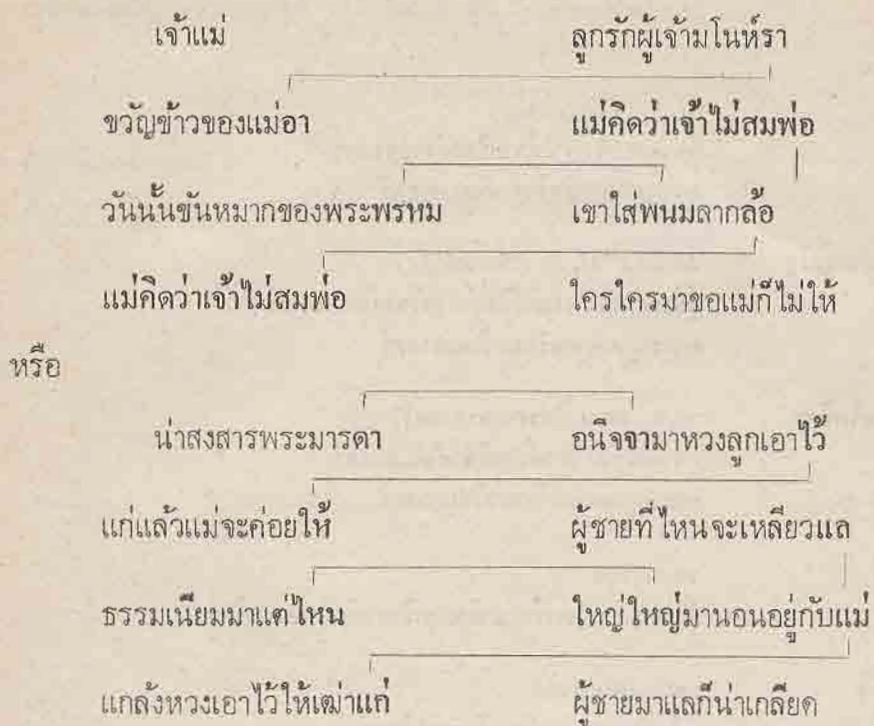 เจ้าแม่ ลูกรักผู้เจ้ามโนห์รา
ขวัญข้าวของแม่อา แม่คิดว่าเจ้าไม่สมพ่อ
วันนั้นขันหมากของพระพรหม เขาใส่พนมลากล้อ
แม่คิดว่าเจ้าไม่สมพ่อ ใครใครมาขอแม่ก็ไม่ให้
หรือ
น่าสงสารพระมารดา อนิจจามาหวงลูกเอาไว้
แก่แล้วแม่จะค่อยให้ ผู้ชายที่ไหนจะเหลียวแล
ธรรมเนียมมาแต่ไหน ใหญ่ใหญ่มานอนอยู่กับแม่
แกล้งหวงเอาไว้ให้เฒ่าแก่ ผู้ชายมาแลก็น่าเกลียด